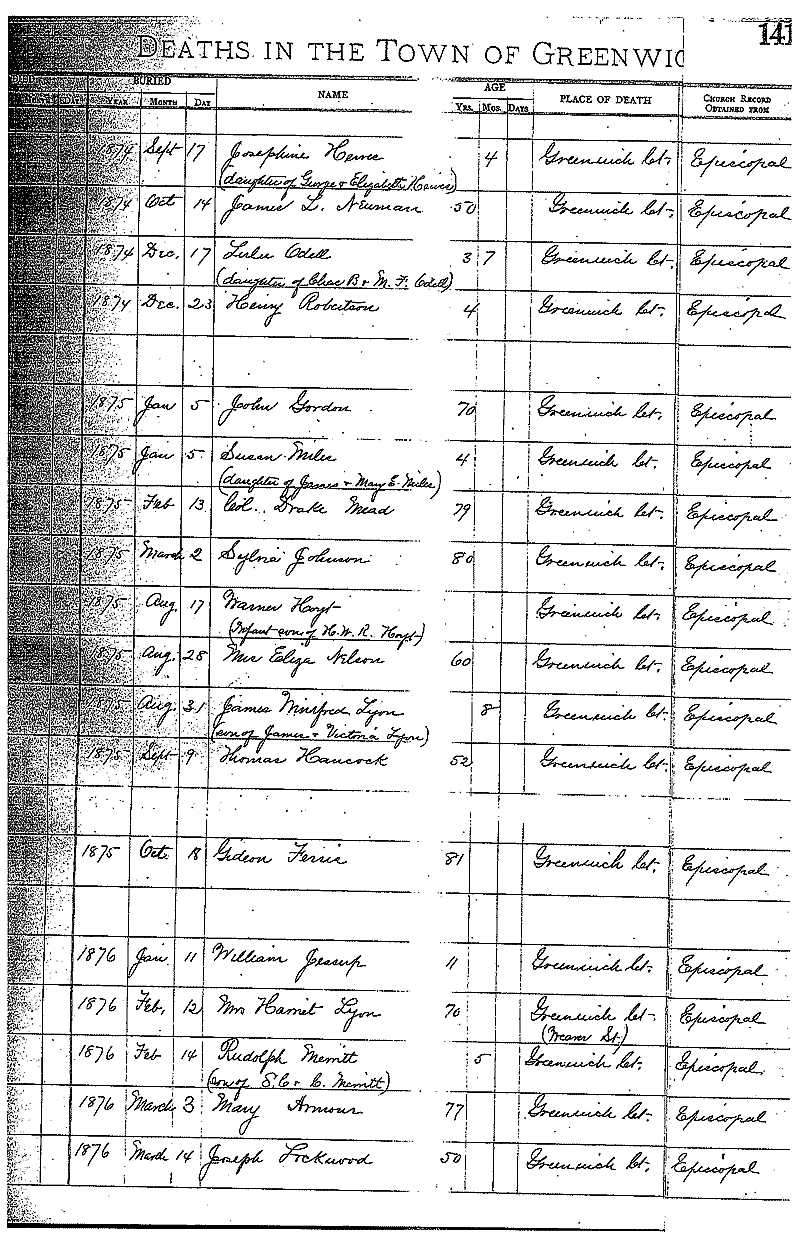 141
DEATHS IN THE TOWN OF GREENWIC
BURIED AGE
MONTH DAY YEAR MONTH DAY NAME YRS. MOS. DAYS PLACE OF DEATH CHURCH RECORD
OBTAINED FROM
1874 Sept 17 Josephine 4 Greenwich Ct. Episcopal
(daughter of George & Elizabeth
1874 Oct 14 James L. Neuman 50 Greenwich Ct. Episcopal
1874 Dec. 17 Lulu Odell 3 7 Greenwich Ct. Episcopal
(daughter of Chas B & M. F. Odell)
1874 Dec. 23 Henry Robertson 4 Greenwich Ct. Episcopal
1875 Jan 5 John Gordon 70 Greenwich Ct. Episcopal
1875 Jan 5 Susan Miles 4 Greenwich Ct. Episcopal
(daughter of James & Mary E. Miles)
1875 Feb 13 Col. Drake Mead 79 Greenwich Ct. Episcopal
1875 March 2 Sylvia Johnson 80 Greenwich Ct. Episcopal
1875 Aug. 17 Warner Hoyt Greenwich Ct. Episcopal
(Infant son of H. W. R. Hoyt)
1875 Aug. 28 Mrs Eliza Nelson 60 Greenwich Ct. Episcopal
1875 Aug. 31 James Winifred Lyon 8 Greenwich Ct. Episcopal
(son of James & Victoria Lyon)
1875 Sept 9 Thomas Hancock 52 Greenwich Ct. Episcopal
1875 Oct. 18 Gideon Ferris 81 Greenwich Ct. Episcopal
1876 Jan. 11 William Jessup 11 Greenwich Ct. Episcopal
1876 Feb. 12 Mrs Harriet Lyon 70 Greenwich Ct. Episcopal
(Weaver St.)
1876 Feb 14 Rudolph Merritt 5 Greenwich Ct. Episcopal
(son of S. C. & C. Merritt)
1876 March 3 Mary Armour 77 Greenwich Ct. Episcopal
1876 March 14 Joseph Lockwood 50 Greenwich Ct. Episcopal